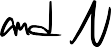 and N